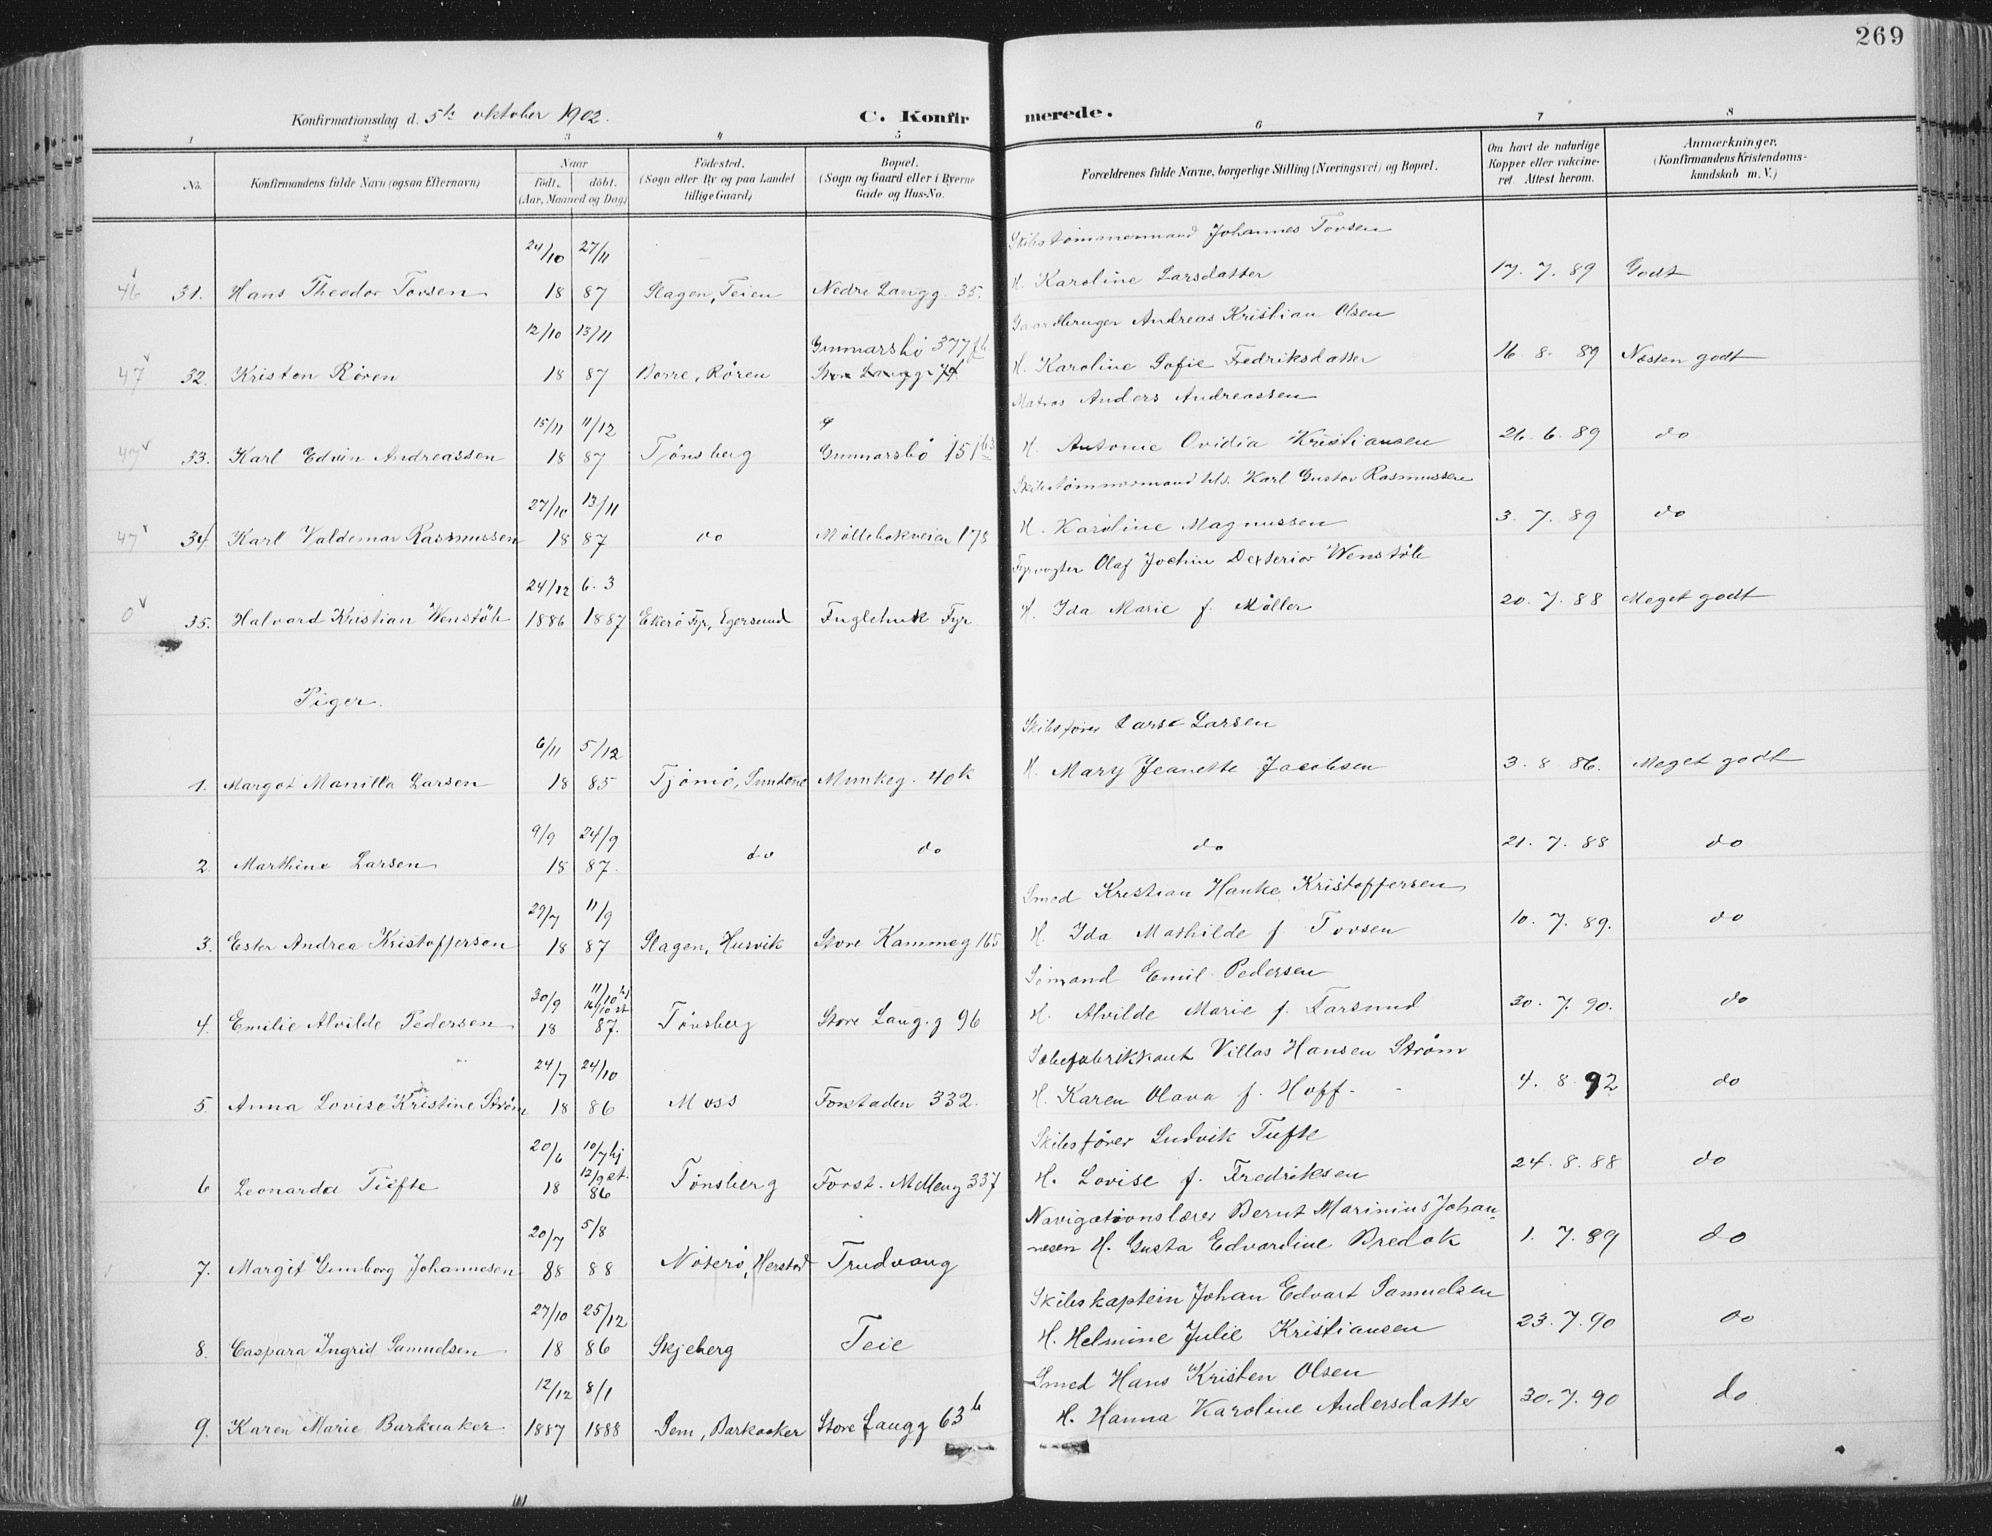 269
Konfirmationsdag d. 5te oktober 1902.
C. Konfirmerede.
1 2 3 4 5 6 7 8
No. Konfirmandens fulde Navn (ogsaa Efternavn) Naar født, døbt. (Aar, Maaned og Dag) Fødested. (Sogn eller By og paa Landet tillige Gaard) Bopæl. (Sogn og Gaard eller i Byerne Gade og Hus-No. Forældrenes fulde Navne, borgerlige Stilling (Næringsvei) og Bopæl. Om havt de naturlige Kopper eller vakcineret. Attest herom. Anmærkninger, (Konfirmandens Kristendomskundskab m. V.)
24/10 27/11 Skibstømmermand Johannes Torsen
46 31. Hans Theodor Torsen 18 87 Slagen, Teien Nedre Langg. 35. H. Karoline Larsdatter 17. 7. 89 Godt
12/10 13/11 Gunnarsbø 377 Gaardbruger Andreas Kristian Olsen
47 32. Kristen Røren 18 87 Borre, Røren Store Langg. H. Karoline Sofie Fredriksdatter 16. 8. 89 Næsten godt
15/11 11/12 Matros Anders Andreassen
47 33. Karl Edvin Andreassen 18 87 Tønsberg Gunnarsbø 151 H. Antonie Ovidia Kristiansen 26. 6. 89 do
27/10 13/11 Skibstømmermand Karl Gustav Rasmussen
47 34 Karl Valdemar Rasmussen 18 87 do Møllebakveien 173 H. Karoline Magnussen 3. 7. 89 do
24/12 6. 3 Fyrvogter Olaf Jochim Dexterior Wenstöb
0 35. Halvard Kristian Wenstöb 1886 1887 Ekerö Fyr, Egersund Fuglehuk Fyr H. Ida Marie f. Møller 20. 7. 88 Meget godt
Piger.
6/11 5/12 Skibsfører Lars Larsen
1. Margot Manilla Larsen 18 85 Tjömö, Sundene Munkeg. 40k H. Mary Jeanette Jacobsen 3. 8 86. Meget godt
9/9 24/9
2. Marthine Larsen 18 87. do do do 21. 7. 88 do
29/7 11/9 Smed Kristian Hanke Kristoffersen
3. Ester Andrea Kristoffersen 18 87 Slagen, Husvik Store Kammeg 165 H. Ida Mathilde f Torsen 10. 7. 89. do
30/9 11/10 hj 16/10 st Sömand Emil Pedersen
4. Emilie Alvilde Pedersen 18 87. Tønsberg Store Lang.g 96 H. Alvilde Marie f. Farsund 30. 7. 90. do
24/7 24/10 Sæbefabrikkant Villas Hansen Strøm
5. Anna Lovise Kristine Strøm 18 86 Moss Forstaden 332. H. Karen Olava f. Hoff 4. 8. 92 do
20/6 10/7 hj 12/9 st. Skibsfører Ludvik Tufte
6 Leonarda Tufte 18 86 Tønsberg Forst. Mølleng 337 H. Lovise f. Fredriksen 24. 8. 88 do
20/7 5/8 Navigationslærer Bernt Marinius Johan-
7. Margit Gunborg Johannesen 88 88 Nøterø, Herstad Trudvang nesen H. Gusta Edvardine Bredok 1. 7. 89 do
27/10 25/12 Skibskaptein Johan Edvart Samuelsen
8. Caspara Ingrid Samuelsen 18 86 Skjeberg Teie H. Helmine Julie Kristiansen 23. 7. 90 do
12/12 8/1 Smed Hans Kristen Olsen
9. Karen Marie Barkaaker 1887 1888 Sem, Barkaaker Store Langg 63b H. Hanna Karoline Andersdatter 30. 7. 90 do